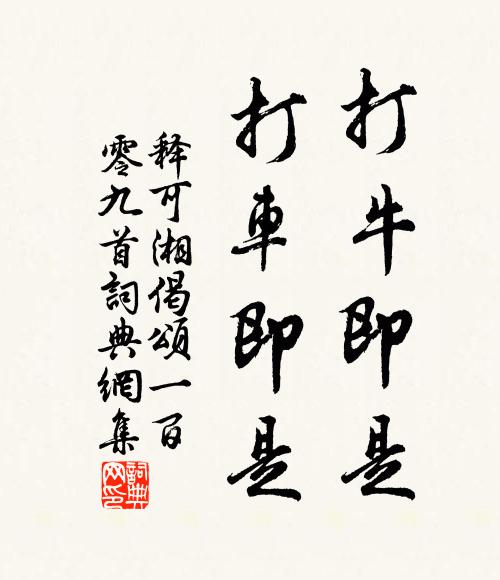 打牛即是
打車即是
释可湘偈頌一百
零九首詞典網集
詞典
网印